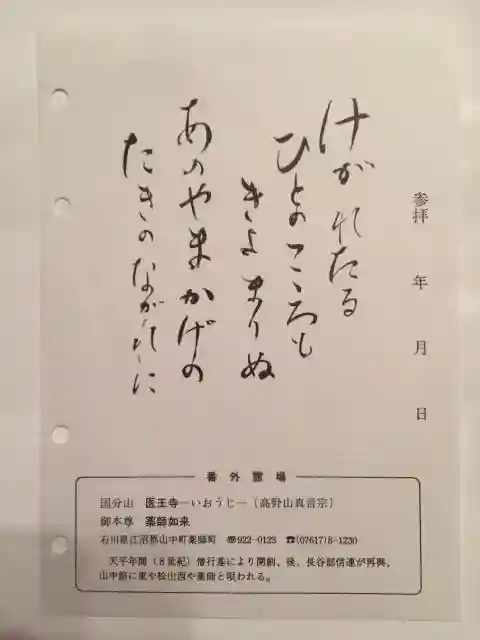 けがれたる
ひとのこころも
きよまりぬ
あのやまかげの
たきのながれに
参拝 年 月 日
番外霊場
国分山 医王寺―いおうじ―（高野山真言宗）
御本尊 薬師如来
石川県江沼郡山中町薬師町 〠922-0123 ☎(07617)8-1230
天平年間（8世紀）僧行基により開創、後、長谷部信連が再興、
山中節に東や松山西や薬師と唄われる。